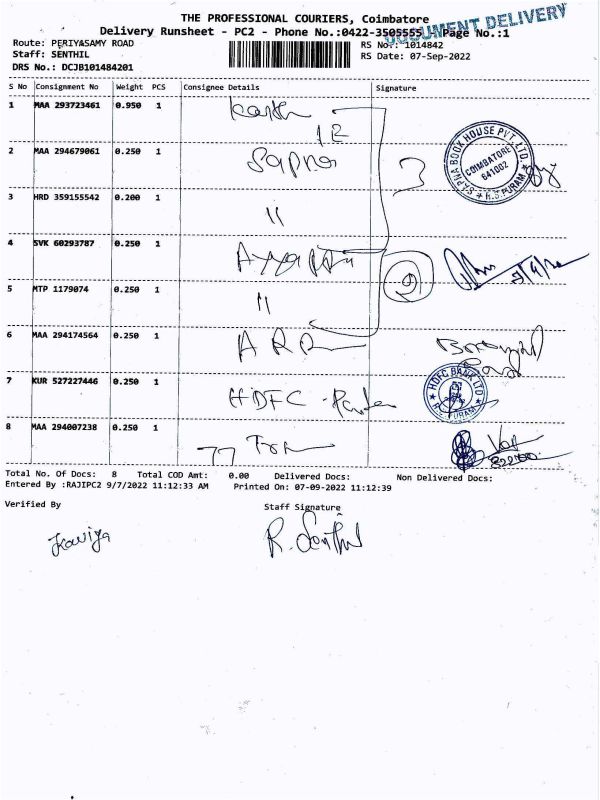 THE PROFESSIONAL COURIERS, Coimbatore
DOCUMENT DELIVERY
Delivery Runsheet - PC2 - Phone No.:0422-3505555 Page No.:1
Route: PERIYASAMY ROAD
RS No.: 1014842
Staff: SENTHIL
RS Date: 07-Sep-2022
DRS No.: DCJB101484201
S No Consignment No Weight PCS Consignee Details Signature
1 MAA 293723461 0.950 1
2 MAA 294679061 0.250 1 Sapna
SAPNA BOOK HOUSE PVT. LTD.
COIMBATORE
641002
R.S. PURAM
3 HRD 359155542 0.200 1 "
4 SVK 60293787 0.250 1
5 MTP 1179074 0.250 1 "
6 MAA 294174564 0.250 1
7 KUR 527227446 0.250 1 HDFC
HDFC BANK LTD
R.S. PURAM
8 MAA 294007238 0.250 1
Total No. Of Docs: 8 Total COD Amt: 0.00 Delivered Docs: Non Delivered Docs:
Entered By :RAJIPC2 9/7/2022 11:12:33 AM Printed On: 07-09-2022 11:12:39
Verified By Staff Signature
Kaviya R. Senthil